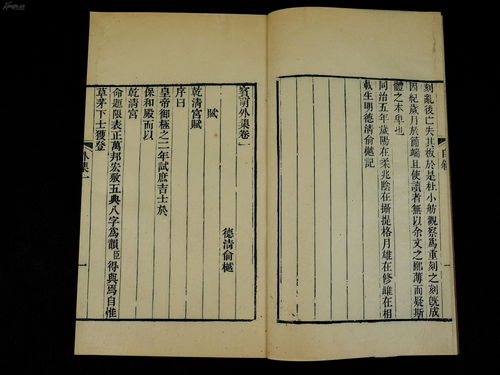 刻亂後亡失其板於是杜小舫觀察爲重刻之刻旣成
因紀歲月於簡端且使讀者無以余文之郿薄而疑斯
體之本卑也
同治五年歲陽在柔兆陰在攝提格月雄在修雌在相
哉生明德清俞樾記
自敘
賓萌外集卷一
德清俞樾
賦
乾清宮賦
序曰
皇帝御極之二年試庶吉士於
保和殿而以
乾清宮
命題限表正萬邦宏敷五典八字爲韻臣得與焉自惟
草茅下士獲登
外集一
一